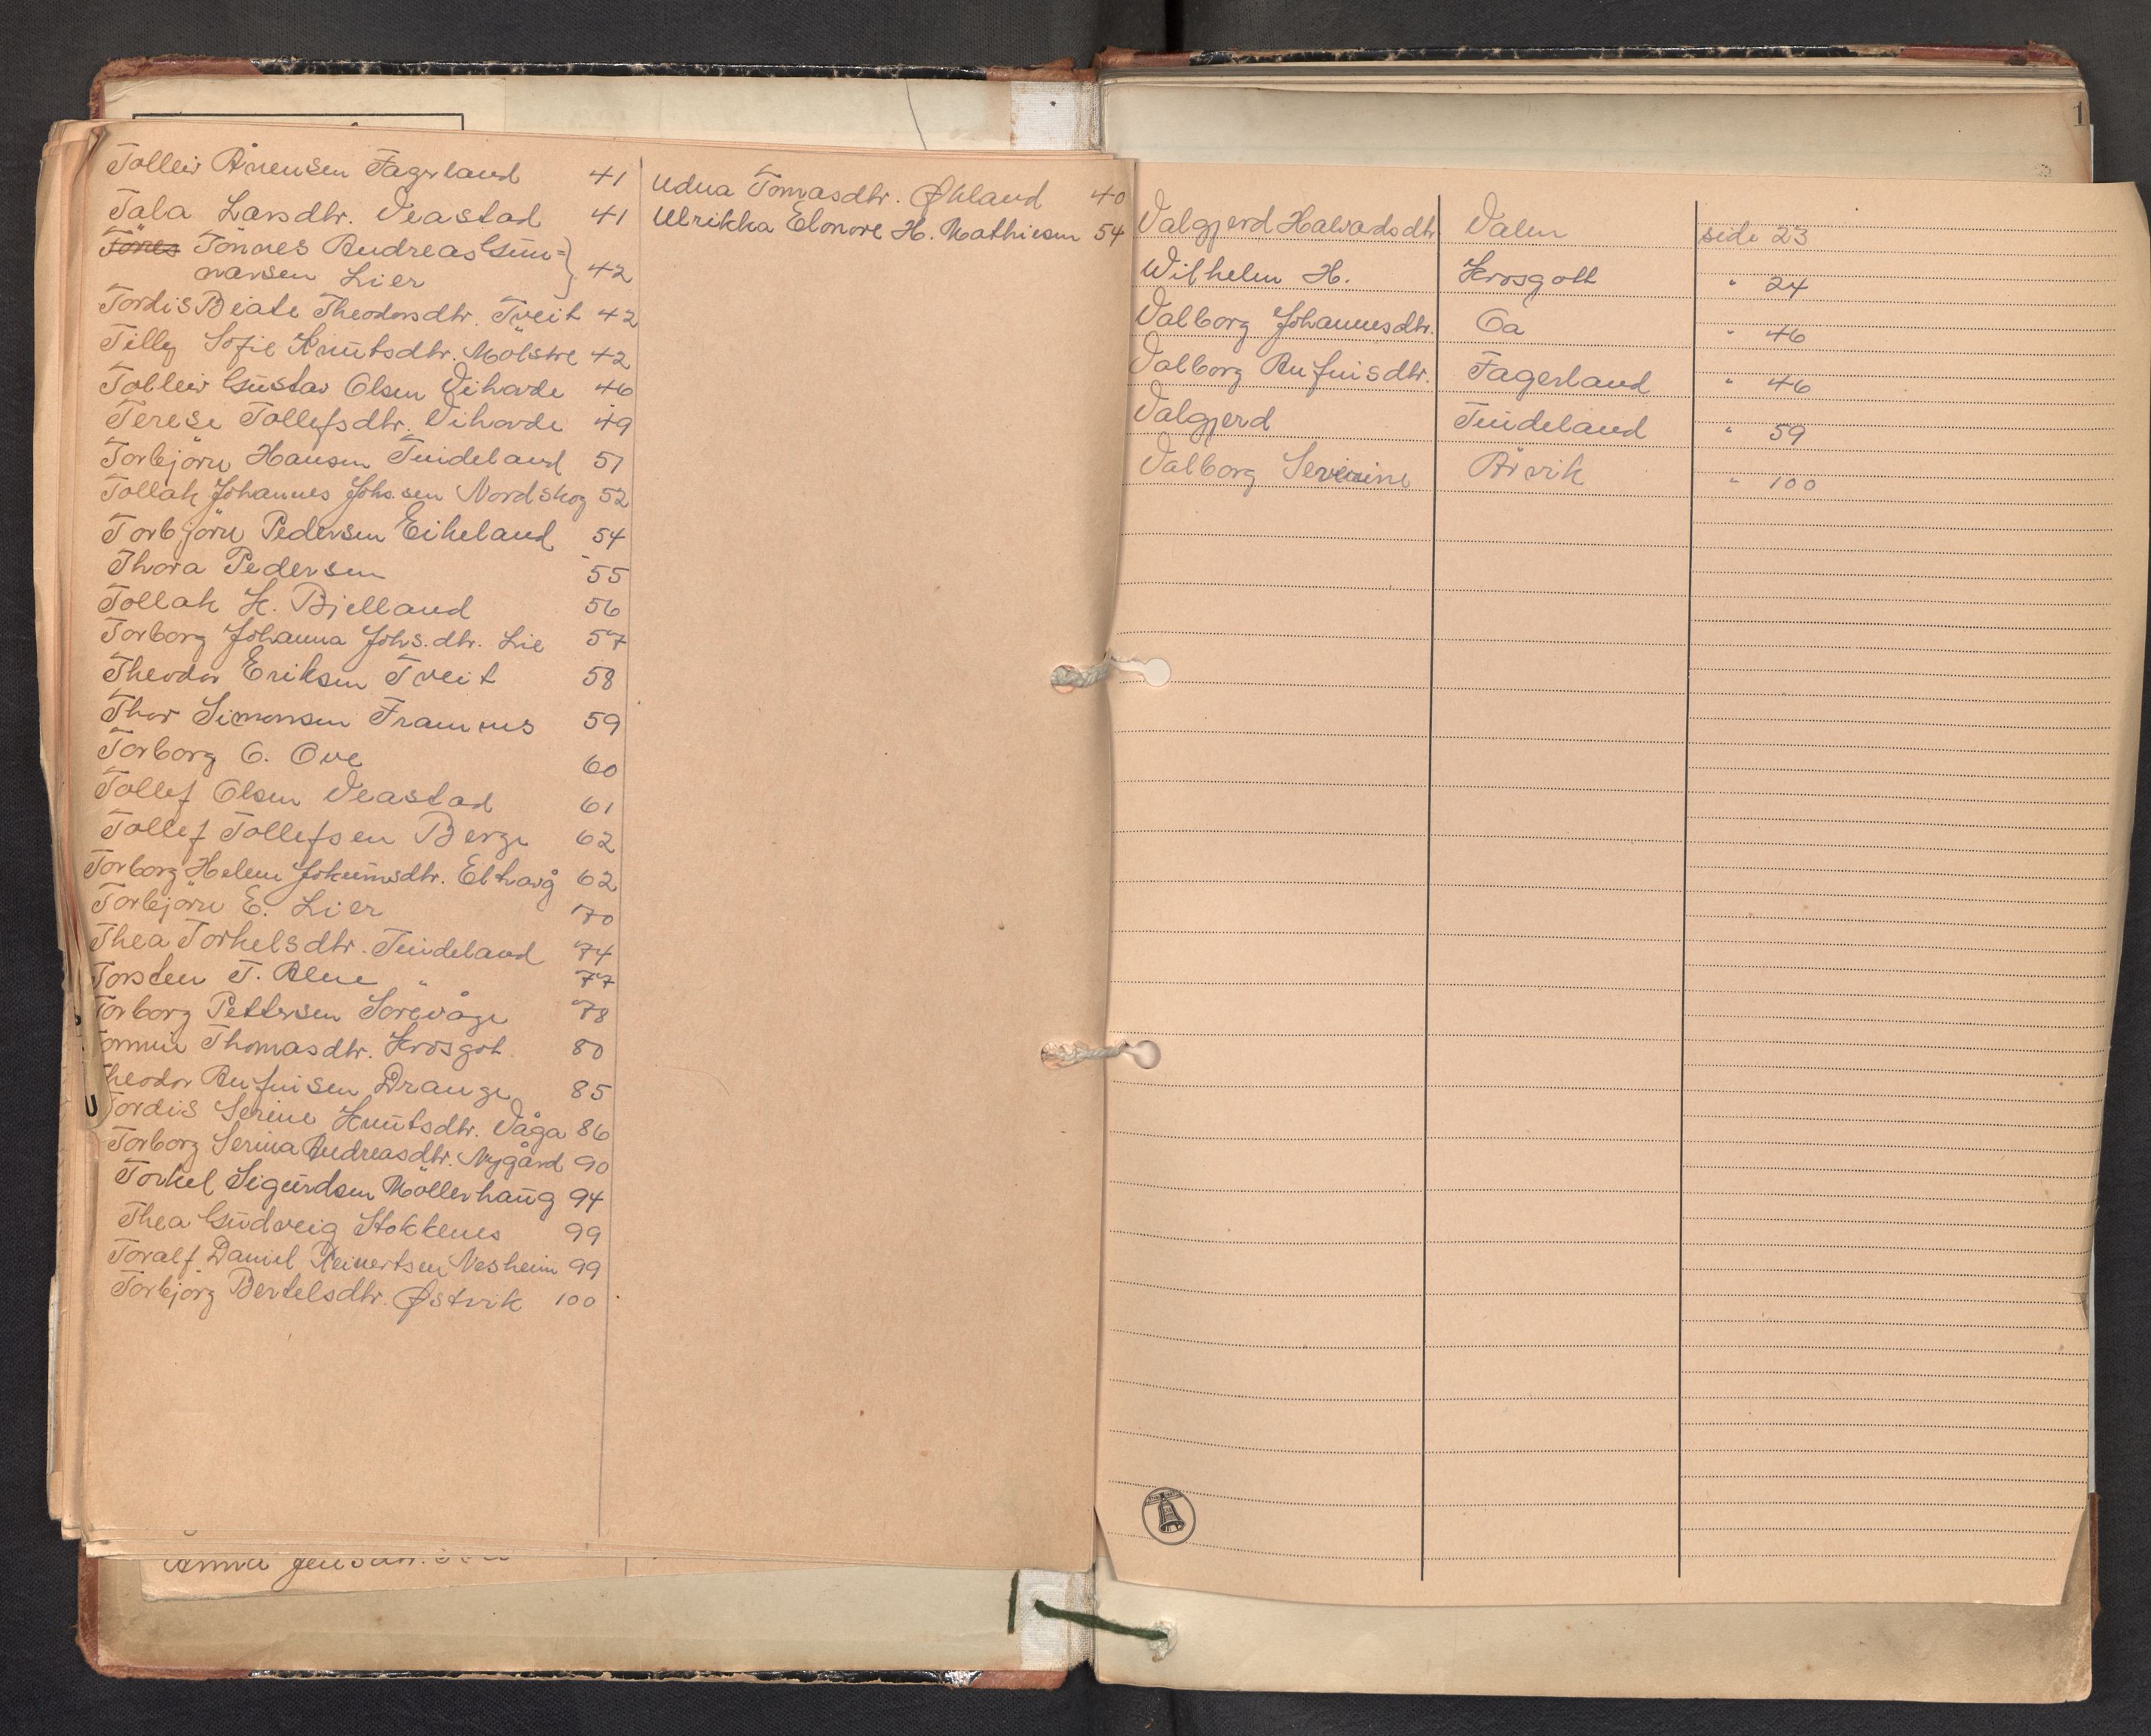 Tolleiv Årensen Fagerland 41
Tala Larsdtr. Veastad 41
Tönnes Andreas Gun=
narsen Lier } 42
Tordis Beate Theodorsdtr. Tveit 42
Tilly Sofie Knutsdtr. Mölstre 42
Tolleiv Gustav Olsen Vihovde 46
Terese Tollefsdtr. Vihovde 49
Torbjörn Hansen Tindeland 51
Tollak Johannes Johs.sen Nordskog 52
Torbjörn Pedersen Eikeland 54
Thora Pedersen 55
Tollak K. Bjelland 56
Torborg Johanna Johs.dtr. Lie 57
Theodor Eriksen Tveit 58
Thor Simonsen Framnes 59
Torborg O. Ove 60
Tollef Olsen Veastad 61
Tollef Tollefsen Berge 62
Torborg Helene Jokumsdtr. Elthavg 62
Torbjörn E. Lier 70
Thea Torkelsdtr. Tindeland 74
Torsten T. Alne " 77
Torborg Pettersen Sorevåge 78
Tomine Thomasdtr. Krosgot. 80
Theodor Anfinsen Drange 85
Tordis Serine Knutsdtr. Våga 86
Torborg Serina Andreasdtr. Nygård 90
Torkel Sigurdsen Möllerhaug 94
Thea Gudveig Stokkenes 99
Toralf Daniel Reinertsen Nesheim 99
Torbjörg Bertelsdtr. Østvik 100
Udna Tomasdtr. Økland 40
Ulrikka Elonore H. Mathiesen 54
Anna Jensdtr.
1
Valgjerd Halvadsdtr. Valen side 23
Wilhelm H. Krosgott " 24
Valborg Johannesdtr. Oa " 46
Valborg Anfinsdtr. Fagerland " 46
Valgjerd Tindeland " 59
Valborg Severine Årvik " 100